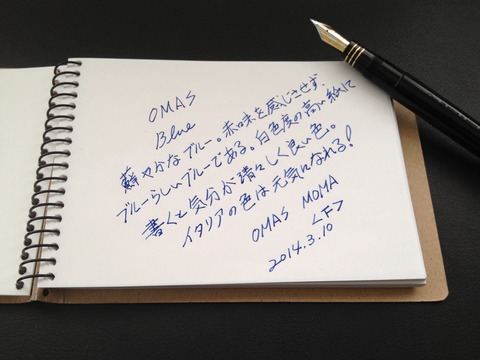 OMAS
Blue
鮮やかなブルー。赤味を感じさせず、
ブルーらしいブルーである。白色度の高い紙に
書くと気分が晴々しく良い色。
イタリアの色は元気になれる!
OMAS MOMA
<F>
2014.3.10